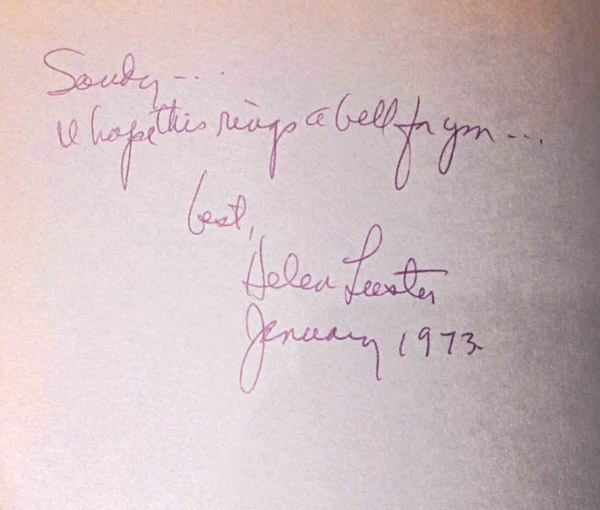 Sandy - - -
I hope this rings a bell for you - - -
best,
Helen
January 1973